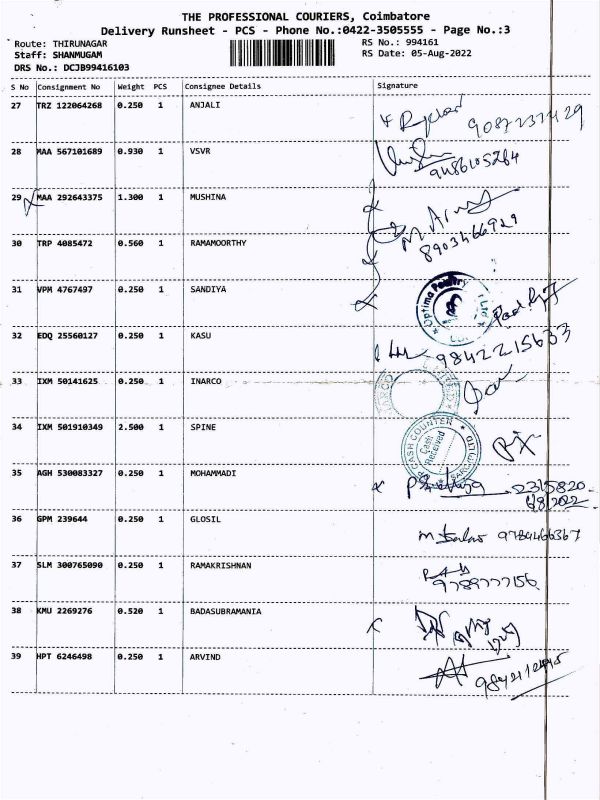 THE PROFESSIONAL COURIERS, Coimbatore
Delivery Runsheet - PCS - Phone No.:0422-3505555 - Page No.:3
Route: THIRUNAGAR RS No.: 994161
Staff: SHANMUGAM RS Date: 05-Aug-2022
DRS No.: DCJB99416103
S No Consignment No Weight PCS Consignee Details Signature
27 TRZ 122064268 0.250 1 ANJALI
28 MAA 567101689 0.930 1 VSVR
9486105284
29 MAA 292643375 1.300 1 MUSHINA
8903466929
30 TRP 4085472 0.560 1 RAMAMOORTHY
31 VPM 4767497 0.250 1 SANDIYA
Optima
32 EDQ 25560127 0.250 1 KASU
9842215633
33 IXM 50141625 0.250 1 INARCO
34 IXM 501910349 2.500 1 SPINE
CASH COUNTER
Cash
Received
35 AGH 530083327 0.250 1 MOHAMMADI
2315820
6/8/2022
36 GPM 239644 0.250 1 GLOSIL
9784466367
37 SLM 300765090 0.250 1 RAMAKRISHNAN
9789777156
38 KMU 2269276 0.520 1 BADASUBRAMANIA
39 HPT 6246498 0.250 1 ARVIND